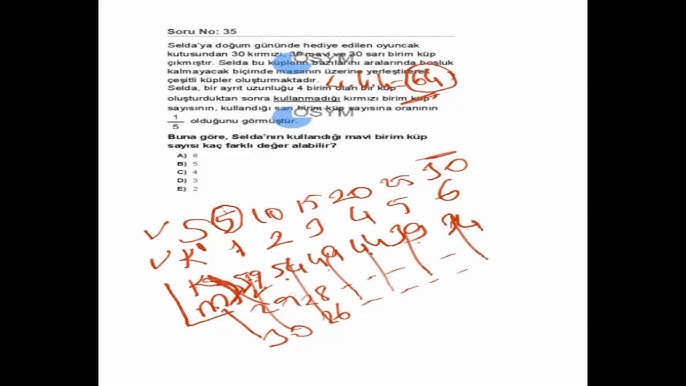 Soru No: 35
Selda'ya doğum gününde hediye edilen oyuncak
kutusundan 30 kırmızı, 30 mavi ve 30 sarı birim küp
çıkmıştır. Selda bu küplerin bazılarını aralarında boşluk
kalmayacak biçimde masanın üzerine yerleştirerek
çeşitli küpler oluşturmaktadır.
4.4.4=64
Selda, bir ayrıt uzunluğu 4 birim olan bir küp
oluşturduktan sonra kullanmadığı kırmızı birim küp
sayısının, kullandığı sarı birim küp sayısına oranının
1/5 olduğunu görmüştür.
ÖSYM
ÖSYM
Buna göre, Selda'nın kullandığı mavi birim küp
sayısı kaç farklı değer alabilir?
A) 6
B) 5
C) 4
D) 3
E) 2
S 5 10 15 20 25 30
K' 1 2 3 4 5 6
K 59 54 49 44 39 34
29 28
30 26